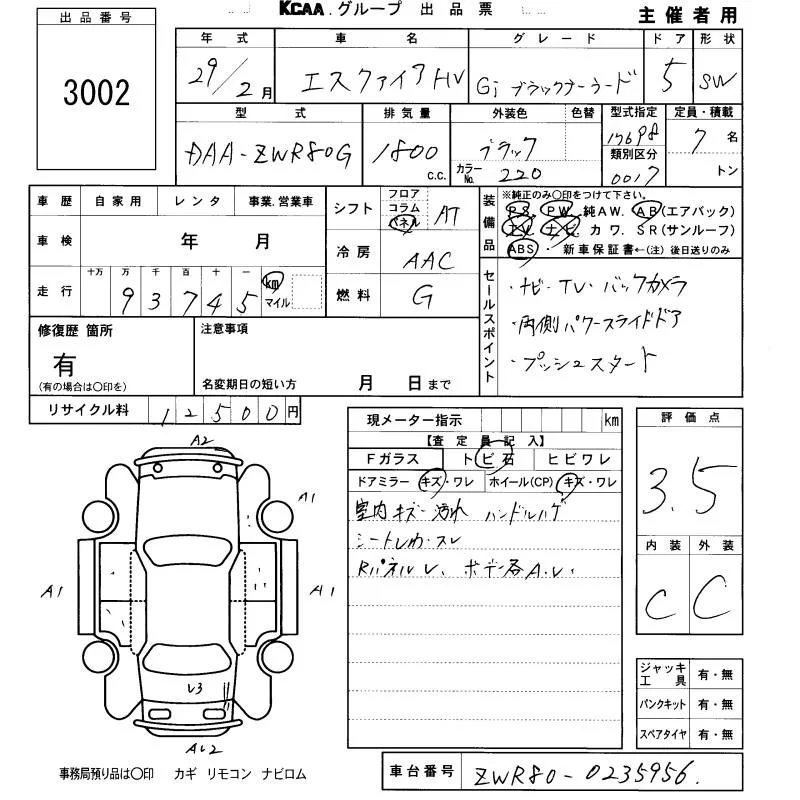 KCAA.グループ 出品票
主催者用
出品番号
3002
年式 車名 グレード ドア 形状
29/2月 エスクァイアHV Gi ブラックテーラード 5 SW
型式 排気量 外装色 色替 型式指定 定員・積載
DAA-ZWR80G 1800 c.c. ブラック 17698 7名
カラーNo. 220 類別区分 0017 トン
車歴 自家用 レンタ 事業.営業車
車検 年 月
走行 十万 万 千 百 十 一
93745 km マイル
シフト フロア コラム パネル AT
冷房 AAC
燃料 G
装備品 ※純正のみ○印をつけて下さい。
PS. PW. 純AW. AB(エアバック)
TV. ナビ. カワ. SR(サンルーフ)
ABS ・ 新車保証書←(注) 後日送りのみ
セールスポイント
・ナビ・TV・バックカメラ
・両側パワースライドドア
・プッシュスタート
修復歴 箇所
有
(有の場合は○印を)
注意事項
名変期日の短い方 月 日まで
リサイクル料 12500円
現メーター指示 km
【査定員記入】
Fガラス トビ石 ヒビワレ
ドアミラー キズ・ワレ ホイール(CP) キズ・ワレ
室内キズ・汚れ ハンドルハゲ
シートレカ・スレ
Rパネルレ、ボデー各A.レ.
評価点
3.5
内装 外装
C C
ジャッキ工具 有・無
パンクキット 有・無
スペアタイヤ 有・無
A2
A1
A1
A1
レ3
Aレ2
事務局預り品は○印 カギ リモコン ナビロム
車台番号 ZWR80-0235956.